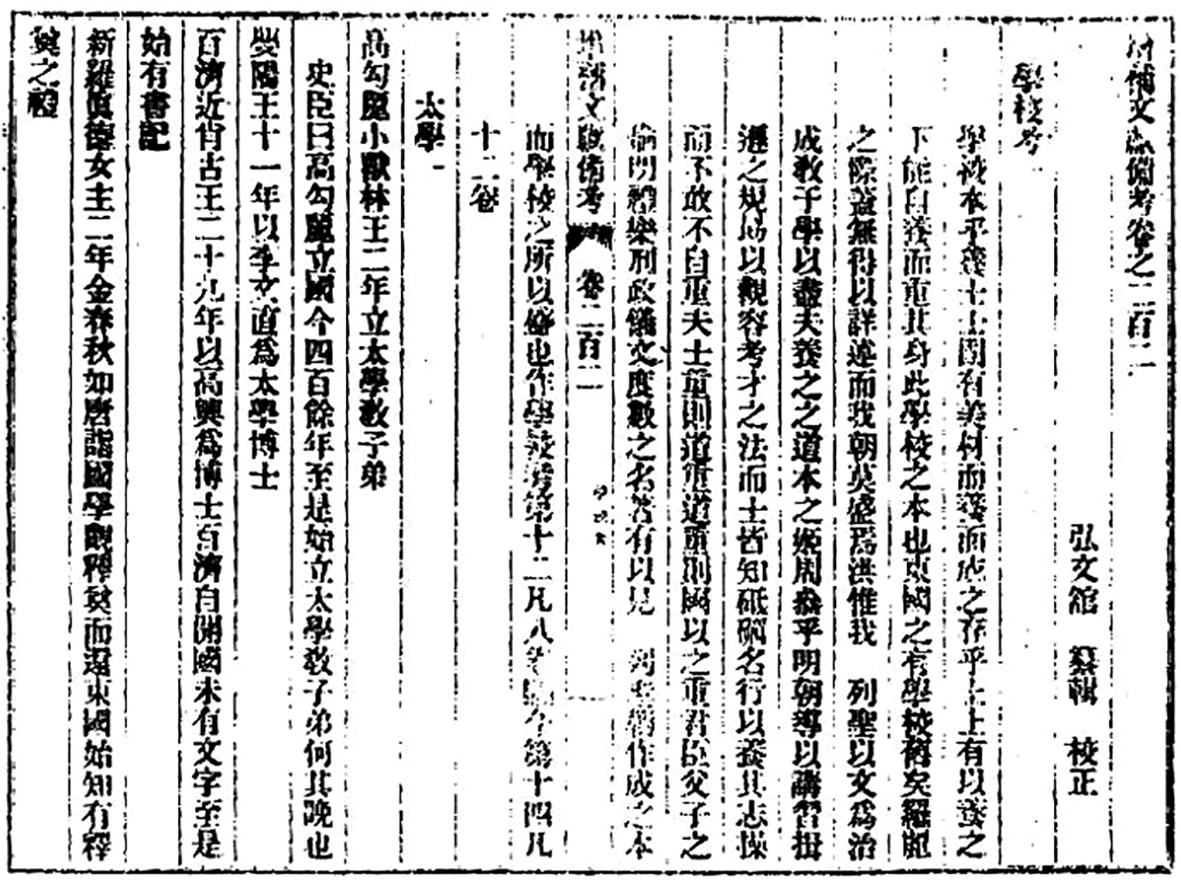 增補文獻備考卷之二百二
弘文館 纂輯 校正
學校考一
學校本乎養士士固有美材而養而成之存乎上上有以養之
下能自養而重其身此學校之本也東國之有學校舊矣羅麗
之際蓋無得以詳述而我朝莫盛焉洪惟我 列聖以文爲治
成敎于學以盡夫養之之道本之姬周叅乎明朝導以講習揖
遜之規協以觀容考才之法而士皆知砥礪名行以養其志操
而不敢不自重夫士重則道重道重則國以之重君臣父子之
倫明禮樂刑政儀文度數之名答有以見 作成之本
增補文獻備考 卷二百二
而學校之所以盛也作學校考第十二凡八 今第十四凡
十二卷
太學一
高勾麗小獸林王二年立太學敎子弟
史臣曰高勾麗立國今四百餘年至是始立太學敎子弟何其晚也
嬰陽王十一年以李文眞爲太學博士
百濟近肖古王二十九年以高興爲博士百濟自開國未有文字至是
始有書記
新羅眞德女主二年金春秋如唐詣國學觀釋奠而還東國始知有釋
奠之禮